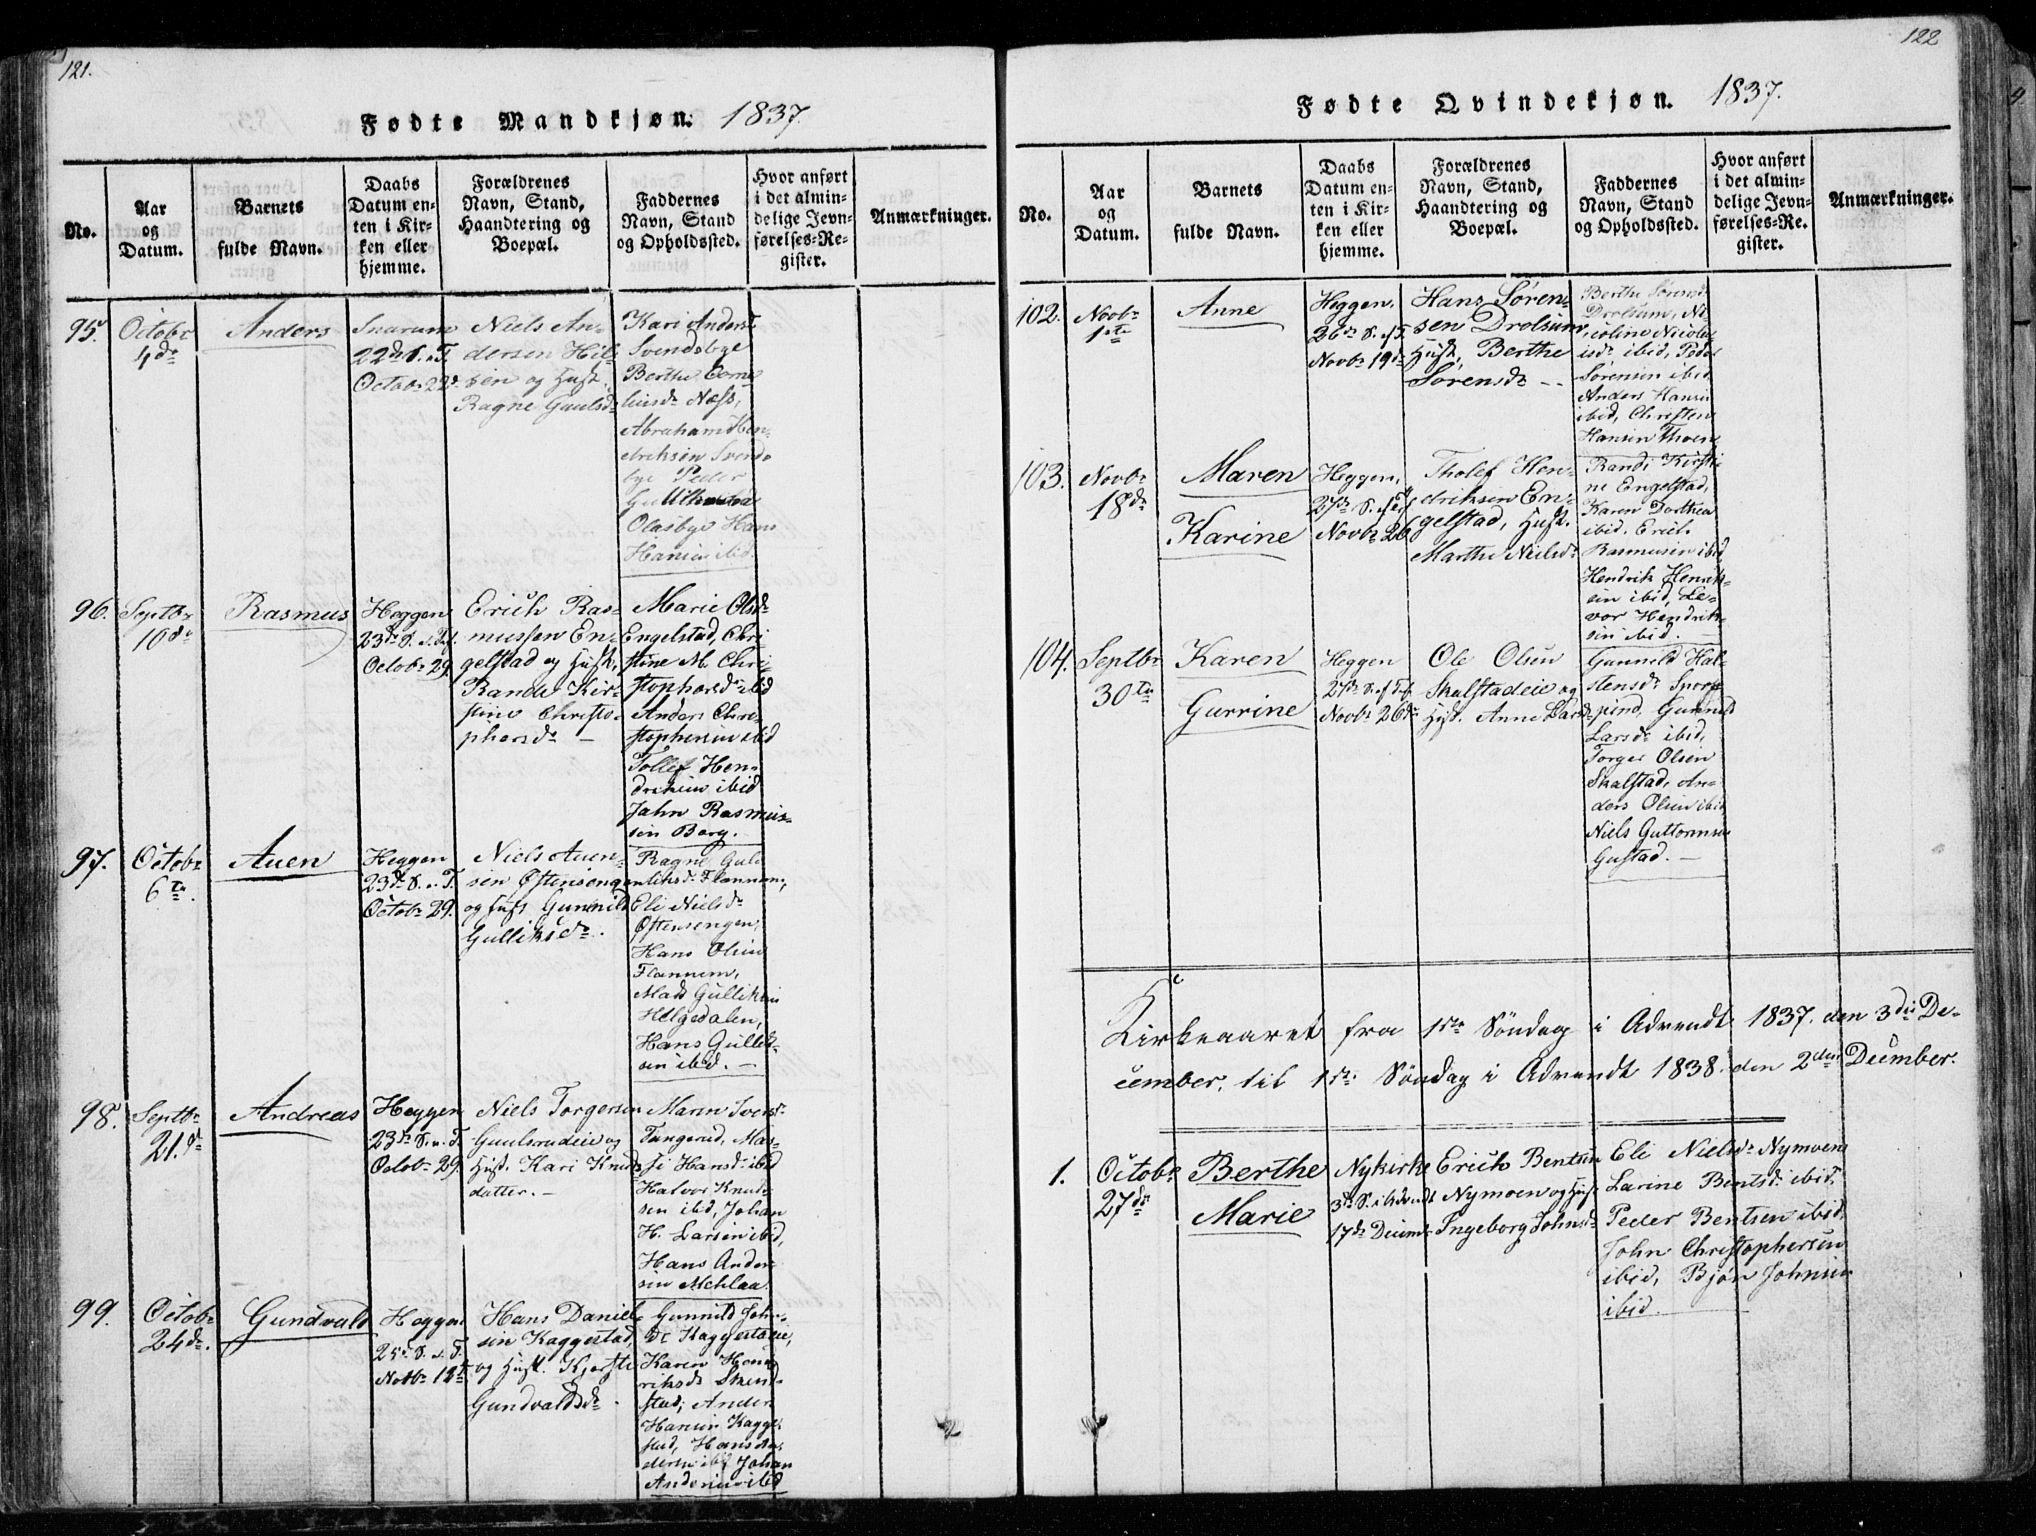 121.
Fødte Mandkjøn. 1837.
No.
Aar
og
Datum.
Barnets
fulde Navn.
Daabs
Datum en-
ten i Kir-
ken eller
hjemme.
Forældrenes
Navn, Stand,
Haandtering og
Boepæl.
Faddernes
Navn, Stand
og Opholdssted.
Hvor anført
i det almin-
delige Jevn-
førelses-Re-
gister.
Anmærkninger.
95.
Octobr
4de
Anders
Snarum
22de S. e. T.
Octobr 22d.
Niels An-
dersen Hil-
sen og Hust.
Ragne Guulsdr
Kari Andersd.
Svendsbye
Berthe Corne
liusdr Næss,
Abraham Hen-
driksen Svends
bye Peder
Olasbye Hans
Hansen ibid.
96.
Septbr
10de
Rasmus
Heggen
23de S. e. Tref.
Octobr 29.
Erich Ras-
mussen En-
gelstad og Hust.
Rande Kir-
stine Christo-
phersdr —
Marie Olsdr
Engelstad, Chri
stine M. Chri-
stophersdr ibid
Anders Chri-
stophersen ibid
Tollef Hen-
driksen ibid
Jahn Rasmus-
sen Berg.
97.
Octobr
6te.
Auen
Heggen
23de S. e. T.
Octobr 29.
Niels Auen-
sen Østensengen
og Hust Gunnild
Gulliksdr.
Ragne Gul
liksdr Flannum,
Eli Nielsdr
Østensengen,
Hans Olsen
Flannum,
Mads Gulliksen
Helgedalen,
Hans Gullik-
sen ibid. —
98.
Septbr
21.de
Andreas
Heggen
23de S. e. T.
Octobr 29.
Niels Torgersen
Guulsrudeie og
Hust. Kari Knuds
datter. —
Maren Iversdr
Tangerud, Mas-
si Hansdr ibid
Halvor Knud-
sen ibid, Johan
H. Larsen ibid,
Hans Ander
sen Mehlaa.
99.
Octobr
24de.
Gundvald
Heggen
25de S. e. T.
Novbr 12te
Hans Daniel-
sen Kaggestad,
og Hust. Kjersti
Gundvaldsdr
Gunnild John-
dr Kaggestadeie,
Karen Hend
riksdr Skind-
stad, Anders
Hansen Kagge-
stad, Hans An-
dersen ibid Johan
Andersen ibid
122
Fødte Qvindekjøn. 1837.
No.
Aar
og
Datum.
Barnets
fulde Navn.
Daabs
Datum en-
ten i Kir-
ken eller
hjemme.
Forældrenes
Navn, Stand,
Haandtering og
Boepæl.
Faddernes
Navn, Stand
og Opholdssted.
Hvor anført
i det almin-
delige Jevn-
førelses-Re-
gister.
Anmærkninger.
102.
Novbr
1ste
Anne
Heggen.
26de S. e. T.
Novbr 19de
Hans Søren-
sen Drolsum
Hust, Berthe
Sørensdr --
Berthe Sørensdr
Drolsum, Ni-
coline Nicolai
isdr ibid, Peder
Sørensen ibid
Anders Hansen
ibid, Christen
Hansen Thoen
103.
Novbr
18de
Maren
Karine
Heggen,
27de S. e. Tref
Novbr 26
Tholef Hen-
driksen En-
gelstad, Hust.
Marthe Nielsdr
Randi Kirsti
ne Engelstad,
Karen Dorthea
ibid. Erich
Rasmusen ibid
Hendrik Henrik-
sen ibid, Le-
vor Hendrik-
sen ibid.
104.
Septbr
30te
Karen
Gurrine
Heggen
27de S. e. Tref.
Novbr 26de
Ole Olsen
Skalstadeie og
Hust. Anne Larsdr
Gunnild Hal-
stensdr Spore
pind. Gunnild
Larsdr ibid,
Torger Olsen
Skalstad, An-
ders Olsen ibid
Niels Guttormsen
Gustad. —
Kirkeaaret fra 1ste Søndag i Advendt 1837. den 3die De-
cember, til 1ste Søndag i Advendt 1838. den 2den December.
1.
Octobr
27de
Berthe
Marie
Nykirke
3de S. i Advendt
17de Decembr
Erich Bentsen
Nymoen og Hust
Ingeborg Johnsdr
Eli Nielsdr Nymoen
Larine Bentsdr ibid,
Peder Bentsen ibid,
John Christophersen
ibid, Bjørn Johnsen
ibid.